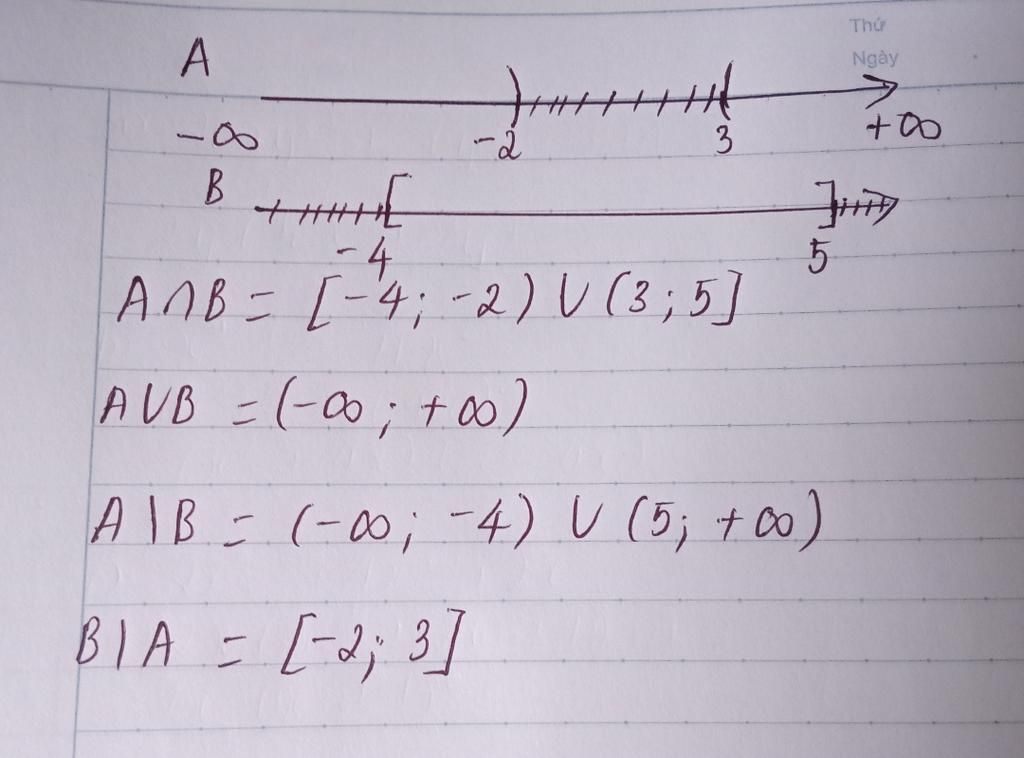 Thứ
Ngày
A
-∞ -2 3 +∞
B
-4 5
A∩B = [-4; -2) ∪ (3; 5]
A∪B = (-∞; +∞)
A|B = (-∞; -4) ∪ (5; +∞)
B|A = [-2; 3]